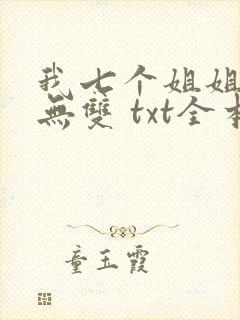 我七个姐姐
無雙 txt全本
童玉霞